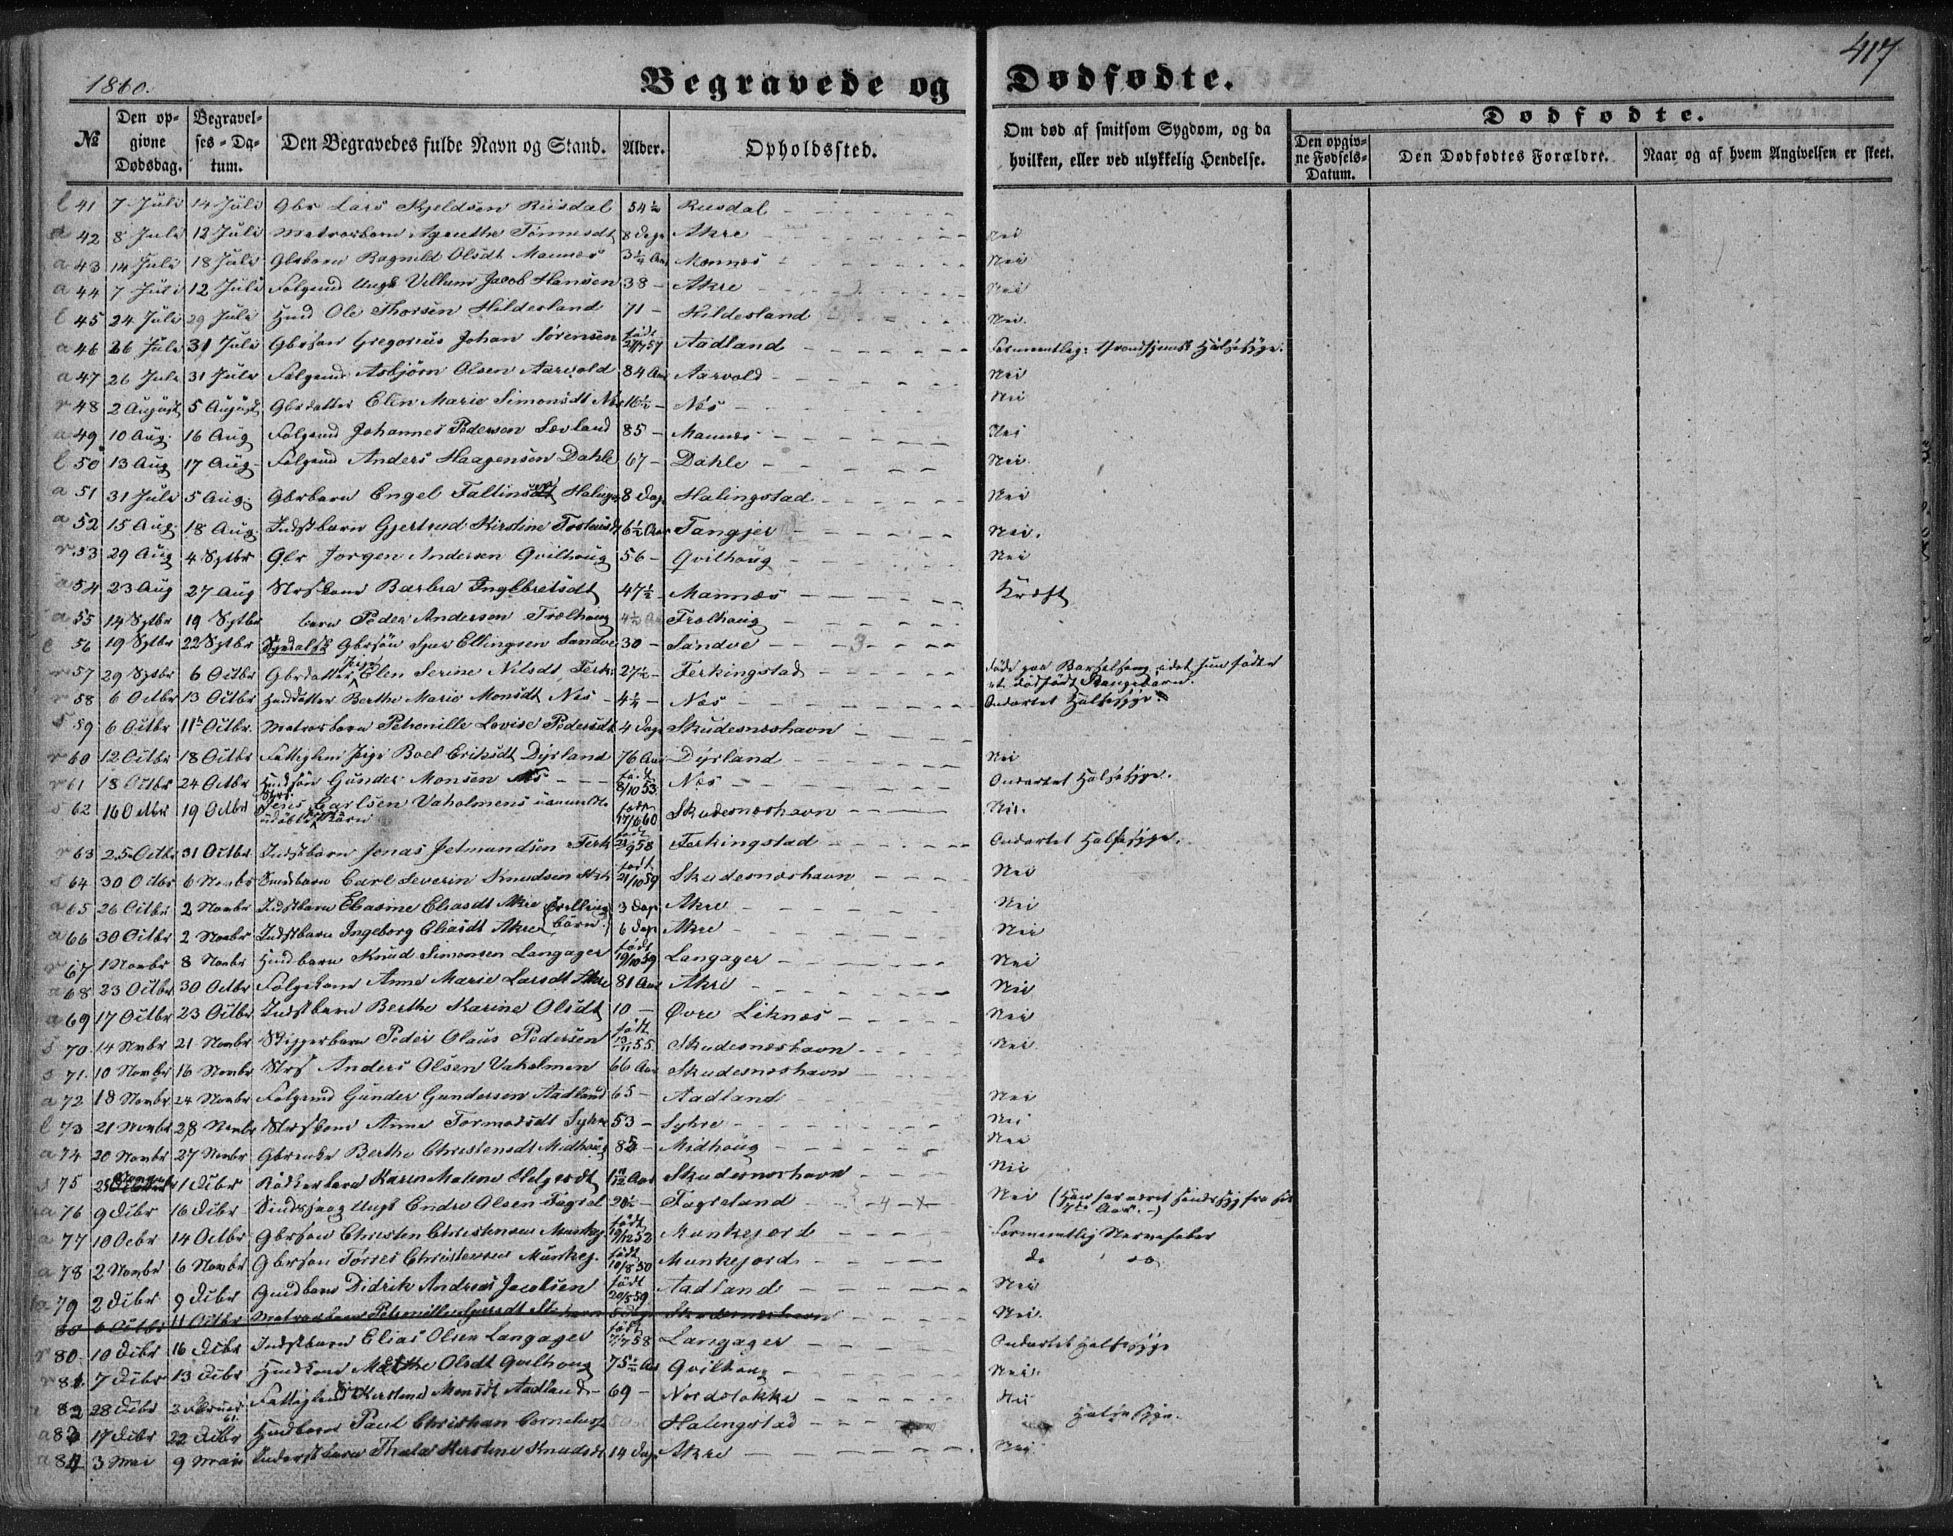 1860.
Begravede og Dødfødte.
417
Dødfødte.
№ Den opgivne Dødsdag. Begravelses-Datum. Den Begravedes fulde Navn og Stand. Alder. Opholdssted. Om død af smitsom Sygdom, og da hvilken, eller ved ulykkelig Hendelse. Den opgivne Fødsels-Datum. Den Dødfødtes Forældre. Naar og af hvem Angivelsen er skeet.
l 41 7 Juli 14 Juli Gbr Lars Kjeldsen Rusdal 54½ Rusdal
a 42 8 Juli 12 Juli Matrosbarn Agnethe Tønnesdt 8 Dage Akre Nei
a 43 14 Juli 18 Juli Gbrbarn Ragnild Olsdt Mannes 3¼ Aar Mannes Nei
a 44 7 Juli 12 Juli Følgmd Ungk Villum Jacob Hansen 38 - Akre Nei
l 45 24 Juli 29 Juli Hmd Ole Thorsen Hildesland 71 - Hildesland Nei.
a 46 26 Juli 31 Juli Gbrsøn Gregorius Johan Sørensen født Aadland Halssyge.
a 47 26 Juli 31 Juli Følgmd Asbjørn Olsen Aarvold 84 Aar Aarvold Nei
r 48 2 August 5 August Gbrdatter Elen Marie Simonsdt Næs 16½ - Nés Nei
a 49 10 Aug. 16 Aug Følgmd Johannes Pedersen Sævland 85 - Mannes Nei
l 50 13 Aug 17 Aug Følgmd Anders Haagensen Dahle 67 - Dahle Nei.
a 51 31 Juli 5 Aug. Gbrbarn Engel Faltinsdt 8 Dage Halingstad Nei
a 52 15 Aug. 18 Aug. Indstbarn Gjertrud Kirstine 6½ Aar Tangjer Nei.
r 53 29 Aug 4 Sptbr Gbr Jørgen Andersen Qvilhoug 56 - Qvilhoug Nei
a 54 23 Aug 27 Aug Strskone Barbra Ingebretsdt 47½ - Mannes Kræft
a 55 14 Sptbr 19 Sptbr barn Peder Andersen Trælhoug 4½ Aar Trælhoug
l 56 19 Sptbr 22 Sptbr Gbrsøn Sjur Ellingsen Sandve 30 - Sandve 3
r 57 29 Sptbr 6 Octbr Gbrdatter Pige Elen Serine Nilsdt Ferk: 27½ - Ferkingstad Døde paa Barselseng, idet hun fødte et dødfødt Drengebarn.
r 58 6 Octbr 13 Octbr Husdatter Berthe Marie Monsdt Nes 4½ - Nes Ondartet Halssyge.
s 59 6 Octbr 11te Octbr. Matrosbarn Petronille Lovise Pedersdt 4 Dage Skudesneshavn
r 60 12 Octbr 18 Octbr Fattiglem Pige Boel Eriksdt Dyrland 76 Aar Dyrland Nei
r 61 18 Octbr 24 Octbr Husson Gunder Monsen Nes født 8/10 53 Nes Ondartet Halssyge.
s 62 16 Octbr 19 Octbr Strs. Jens Carlsen Vaholmens udøbte Barn født 17/6 60 Skudesneshavn Nei.
r 63 25 Octbr 31 Octbr Indstbarn Jonas Jetmundsen Ferk født 23/9 58 Ferkingstad Ondartet Halssyge.
s 64 30 Octbr 6 Novbr Indstbarn Carl Severin Knudsen født 21/10 59 Skudesneshavn Nei
a 65 26 Octbr 2 Novbr Indstbarn Elasine Eliasdt Akre (Tvillinge 3 Dage Akre Nei
a 66 30 Octbr 2 Novbr Indstbarn Ingeborg Eliasdt Akre (børn.) 6 Dage Akre Nei
r 67 1 Novbr 8 Novbr Husbarn Knud Simonsen Langager født 19/10 59 Langager Nei
a 68 23 Octbr 30 Octbr Følgekone Anne Marie Larsdt Akre 81 Aar Akre Nei
a 69 17 Octbr 23 Octbr Indstbarn Berthe Karine Olsdt 10 - Øvre Liknes Nei
s 70 14 Novbr 21 Novbr Skipperbarn Peder Olaus Pedersen født 13/11 55 Skudesneshavn Nei
s 71. 10 Novbr 16 Novbr Strs Anders Olsen Vaholmen 66 Aar Skudesneshavn
a 72 18 Novbr 24 Novbr Følgemd Gunder Gundersen Aadland 65 - Aadland Nei
l 73 21 Novbr 28 Novbr Strskone Anne Tormodsdt Syhre 53 - Syhre Nei
a 74 20 Novbr 27 Novbr Gbrenke Berthe Christensdt Midhoug Midhoug Nei
s 75 1 Dcbr Bødkerbarn Karen Malene Helgesdt Skudesneshavn Nei
a 76 9 Dcbr 16 Dcbr Sindssvag Ungk Endre Olsen Fagrel Fagreland 4 x Nei (Han har været sindssyg fra sit 7de Aar.)
a 77 10 Octbr 14 Octbr Gbrsøn Christen Christensen Munkej født 19/12 52 Munkejord Formentlig Nervefeber
a 78 2 Novbr 6 Novbr Gbrsøn Tørres Christensen Munkej. født 10/8 50 Munkejord do do
a 79 2 Dcbr 9 Dcbr Didrik Andreas Jacobsen født 20/5 59 Aadland Nei
80 6 Octbr 11 Octbr Matrosbarn Petronille Skudesneshavn Nei.
r 80. 10 Dcbr 16 Dcbr Indstbarn Elias Olsen Langager født 7/7 58 Langager Ondartet Halssyge
r 81. 7 Dcbr 13 Dcbr Huskone Malthe Olsdt Qvilhoug 75½ Aar Qvilhoug Nei.
82 28 Dcbr 3 Februar 61. Fattiglem Kirstene Monsdt Aadland 69 - Nordstokke Nei
a 83 17 Dcbr 22 Dcbr Husbarn Paul Christian Halingstad Halssyge.
a 84 3 Mai 9 Mai Inderstbarn Thala Kirstine Knudsdt 14 Dage Akre Nei